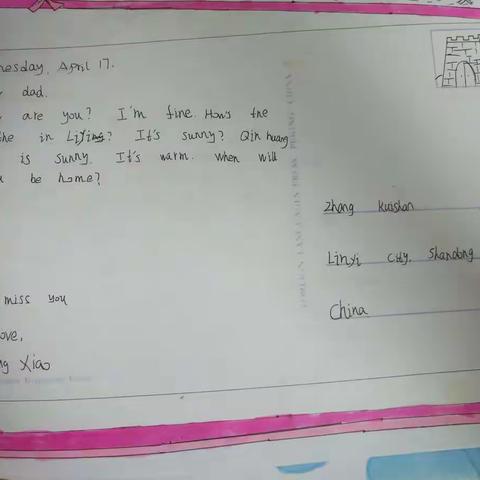 nesday, April 17.
dad.
are you? I'm fine. How's the
the in Liying? It's sunny? Qin huang
is sunny. It's warm. when will
be home?
miss you
ove,
ng Xiao
Zhang Kuishan
Linyi City, Shandong
China